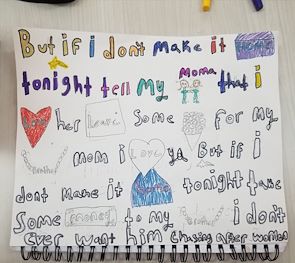 But if i don't make it Home
tonight tell my Moma that i
Love her Leave Some for my
mom i Love ya But if i
dont Make it Home tonight take
Some money to my Brother i don't
Ever want him chasing after